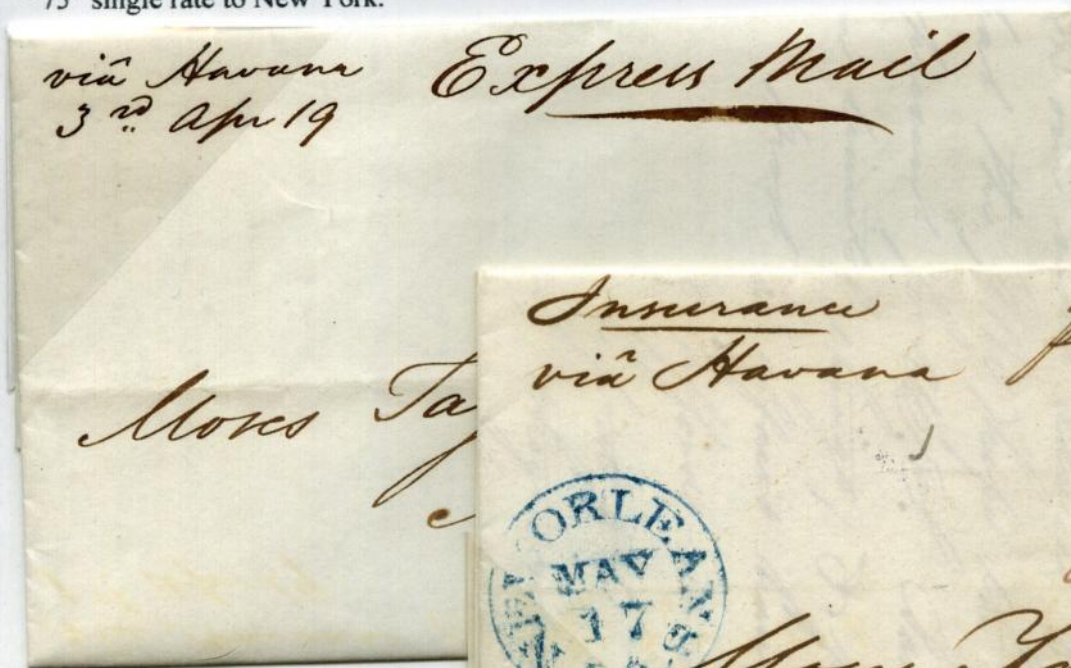 75 single rate to New York.
viâ Havana
3rd Apr 19
Express Mail
Moses Ta
Insurance
viâ Havana
NEW ORLEANS
MAY
17
Moses